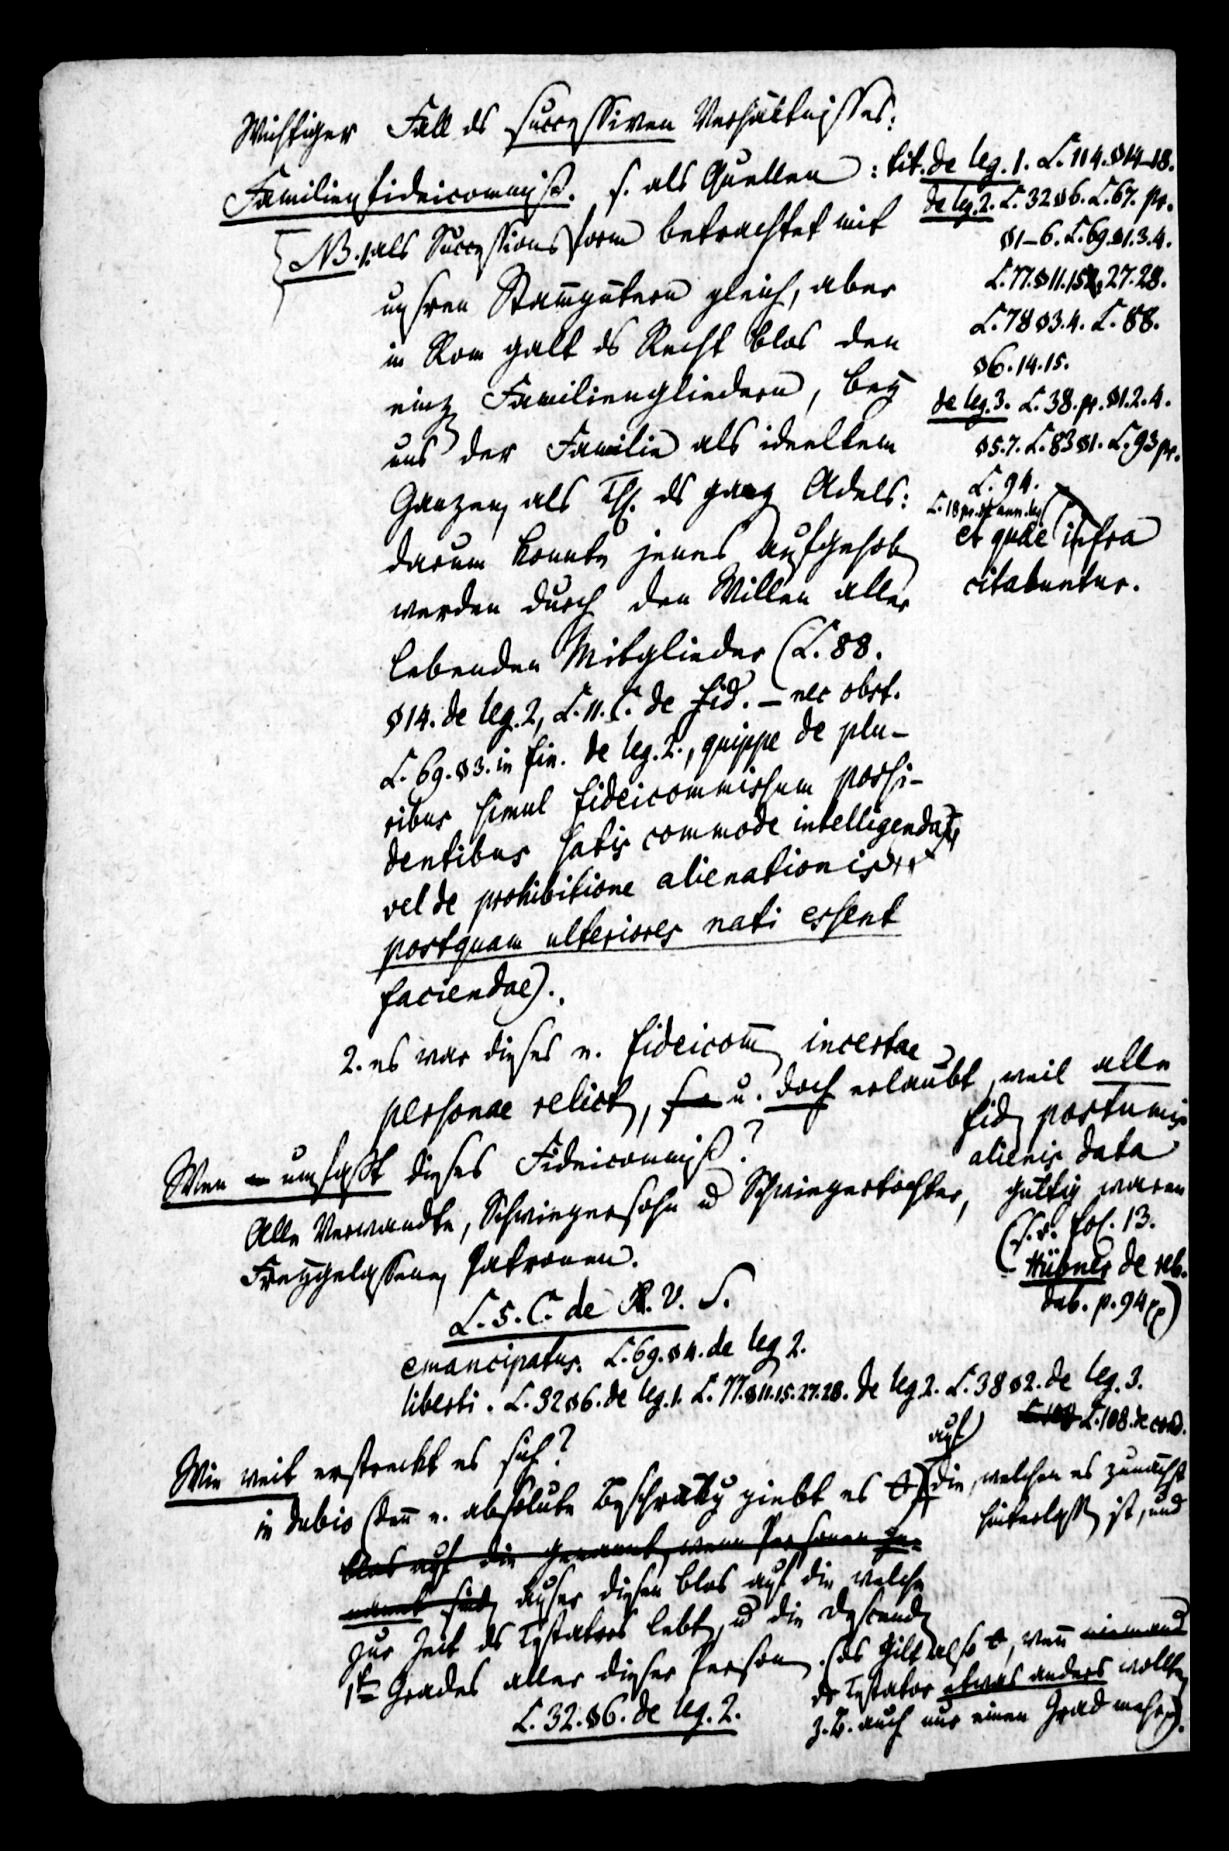 Wichtiger Fall ds successiven Verhältnisses:
Familienfideicommiß. s. als Quellen: tit. de leg. 1. L. 114. §14–18.
de leg. 2. L. 32 §6. L. 67. pr.
§1–6. L. 69. §1.3.4.
L. 77. §11.15. 27.28.
L. 78 §3.4. L. 88.
§6.14.15.
de leg. 3. L. 38. pr. §1.2.4.
§5.7. L. 83 §1. L. 93 pr.
L. 94.
L. 18 pr.
et quae infra
citabuntur.
NB. 1. als Successionsform betrachtet mit
unsren Stammgütern gleich, aber
in Rom galt ds Recht blos den
einz Familiengliedern, bey
uns der Familie als ideellem
Ganzen, als Th. ds ganz Adels:
darum konnte jenes aufgehob
werden durch den Willen aller
lebenden Mitglieder (L. 88.
§14. de leg. 2, L. 11. C. de fid. – nec obst.
L. 69. §3. in fin. de leg. 2., quippe de plu-
ribus simul fideicommissum possi-
dentibus satis commode intelligenda,
vel de prohibitione alienationis
postquam ulteriores nati essent
faciendae).
2. es war dieses e. fideicom̄ incertae
personae relict, u. doch erlaubt, weil alle
fid postumis
alienis data
gültig waren
(s. v. fol. 13.
Hübner de reb.
dub. p. 94 pp)
Wen umfaßt dieses Fideicommiß?
Alle Verwandte, Schwiegersohn u Schwiegertochter,
Freygelassene, Patronen.
L. 5. C. de V. S.
emancipatus. L. 69. §4. de leg 2.
liberti. L. 32 §6. de leg. 1. L. 77. §11.15.27.28. de leg 2. L. 38 §2. de leg. 3.
L. 108. de cond.
Wie weit erstreckt es sich?
in dubio (denn e. absolute Beschränkg giebt es) auf die, welchen es zunächst
hinterlassen ist, und
blos auf die genannt, wenn Personen ge-
nannt sind, ausser diesen blos auf die welche
zur Zeit ds Testators lebt, u die Descend
1ten Grades aller dieser Person. (ds gilt also, wenn niemand
dr Testator etwas anders wollte,
z. B. auch nur einen Grad mehr).
L. 32. §6. de leg. 2.